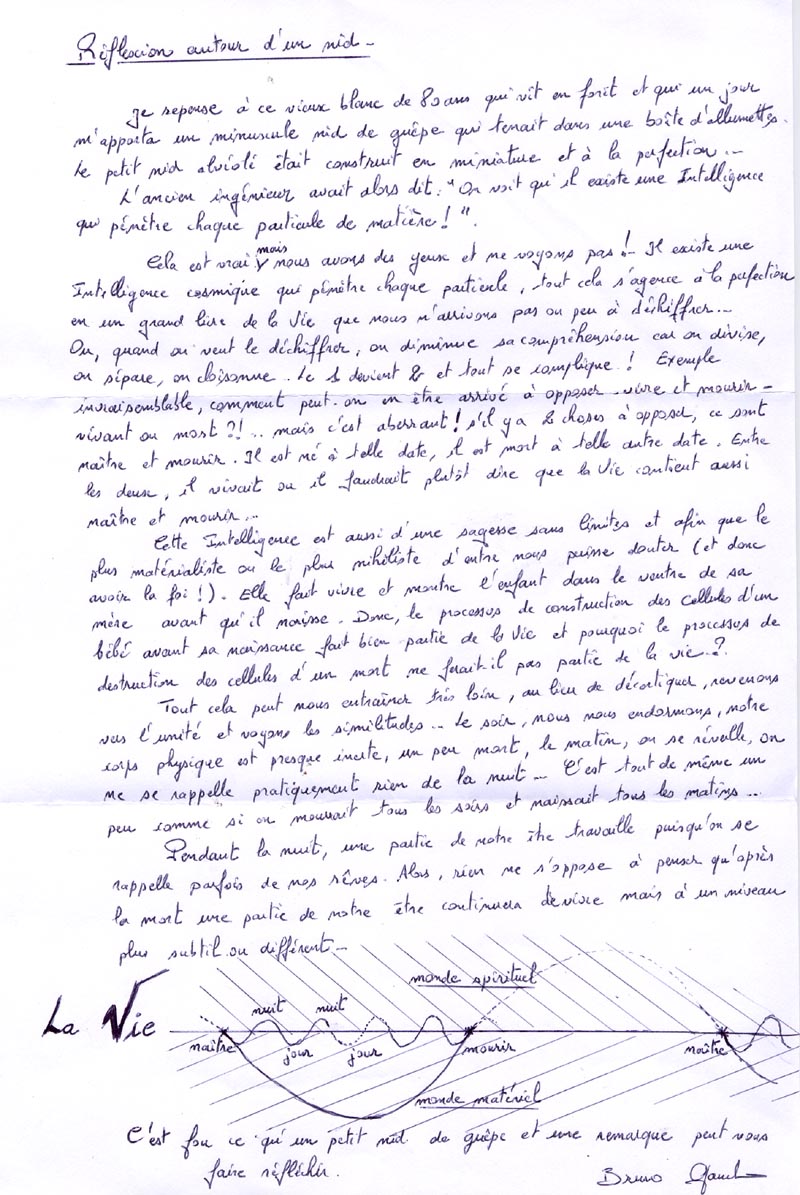 Réflexion autour d'un nid -
Je repense à ce vieux blanc de 80 ans qui vit en forêt et qui un jour
m'apporta un minuscule nid de guêpe qui tenait dans une boîte d'allumettes.
Le petit nid alvéolé était construit en miniature et à la perfection...
L'ancien ingénieur avait alors dit: "On voit qu'il existe une Intelligence
qui pénètre chaque particule de matière!".
Cela est vrai mais nous avons des yeux et ne voyons pas!.. Il existe une
Intelligence cosmique qui pénètre chaque particule, tout cela s'agence à la perfection
en un grand livre de la Vie que nous n'arrivons pas ou peu à déchiffrer...
Ou, quand on veut le déchiffrer, on diminue sa compréhension car on divise,
on sépare, on cloisonne. Le 1 devient 2 et tout se complique! Exemple
invraisemblable, comment peut-on en être arrivé à opposer vivre et mourir -
vivant ou mort?!.. mais c'est aberrant! s'il y a 2 choses à opposer, ce sont
naître et mourir. Il est né à telle date, il est mort à telle autre date. Entre
les deux, il vivait ou il faudrait plutôt dire que la Vie contient aussi
naître et mourir...
Cette Intelligence est aussi d'une sagesse sans limites et afin que le
plus matérialiste ou le plus nihiliste d'entre nous puisse douter (et donc
avoir la foi!). Elle fait vivre et montre l'enfant dans le ventre de sa
mère avant qu'il naisse. Donc, le processus de construction des cellules d'un
bébé avant sa naissance fait bien partie de la Vie et pourquoi le processus de
destruction des cellules d'un mort ne ferait-il pas partie de la vie..?
Tout cela peut nous entraîner très loin, au lieu de décortiquer, revenons
vers l'unité et voyons les similitudes... Le soir, nous nous endormons, notre
corps physique est presque inerte, un peu mort, le matin, on se réveille, on
ne se rappelle pratiquement rien de la nuit... C'est tout de même un
peu comme si on mourrait tous les soirs et naissait tous les matins...
Pendant la nuit, une partie de notre être travaille puisqu'on se
rappelle parfois de nos rêves. Alors, rien ne s'oppose à penser qu'après
la mort une partie de notre être continuera de vivre mais à un niveau
plus subtil ou différent...
monde spirituel
nuit nuit
La Vie
naître jour jour mourir naître
monde matériel
C'est fou ce qu'un petit nid de guêpe et une remarque peut vous
faire réfléchir.
Bruno